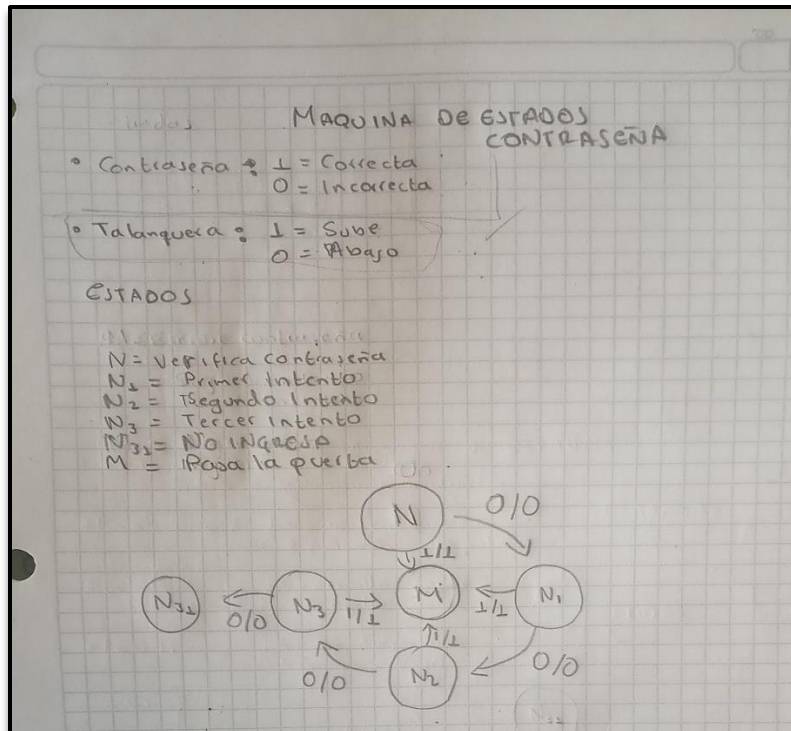 MAQUINA DE ESTADOS
CONTRASEÑA
• Contraseña : 1 = Correcta
0 = Incorrecta
• Talanquera : 1 = Sube
0 = Abajo
ESTADOS
N = Verifica contraseña
N1 = Primer Intento
N2 = Segundo Intento
N3 = Tercer intento
N31 = NO INGRESA
M = Pasa la puerta
N
0/0
1/1
N31
0/0
N3
1/1
M
1/1
N1
1/1
0/0
N2
0/0